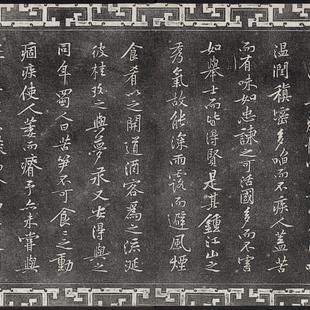 温潤稹密多啗而不疾人蓋苦
而有味如忠諫之可活國多而不害
如舉士而皆得賢是其鍾江山之
秀氣故能深雨露而避風煙
食肴以之開道酒客爲之流涎
彼桂玫之與夢永又安得與之
同年蜀人曰苦笋不可食〻之動
痼疾使人萎而瘠予亦未嘗與